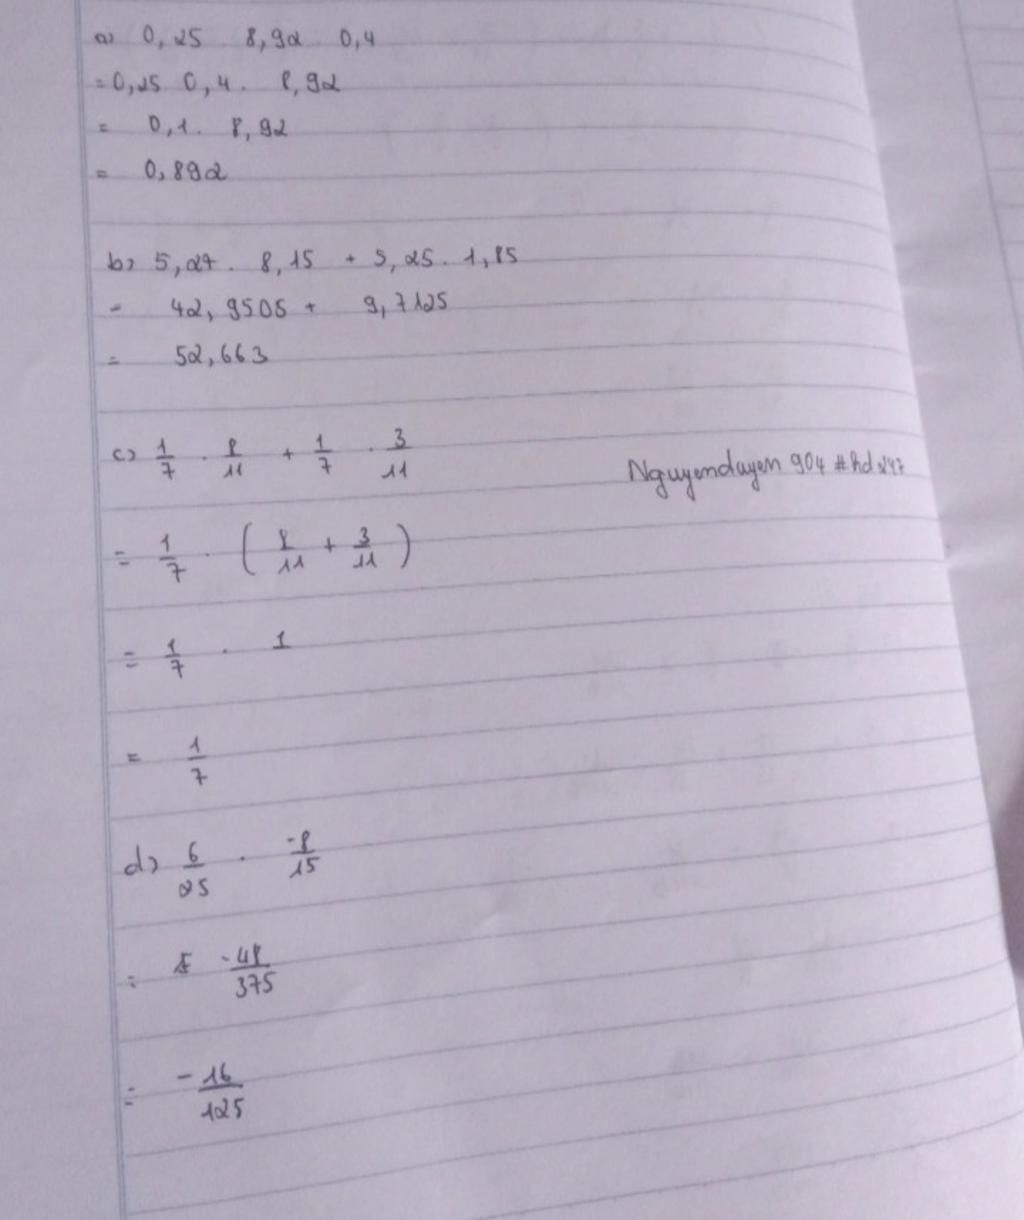 a) 0,25 . 8,92 . 0,4
= 0,25 . 0,4 . 8,92
= 0,1 . 8,92
= 0,892
b) 5,27 . 8,15 + 5,25 . 1,85
= 42,9505 + 9,7125
= 52,663
c) 1/7 . 8/11 + 1/7 . 3/11
Nguyenduyen 904 #hd247
= 1/7 . ( 8/11 + 3/11 )
= 1/7 . 1
= 1/7
d) 6/25 . -8/15
= -48/375
= -16/125